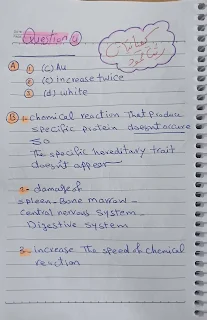 Question 4
A 1 (c) Au
2 (c) increase twice
3 (d) white
B 1- chemical reaction That produce
specific protein doesnt occure
so
The specific hereditary trait
doesnt appear
2- damage of
spleen - Bone marrow -
Central nervous system
Digestive system
3- increase The speed of chemical
reaction